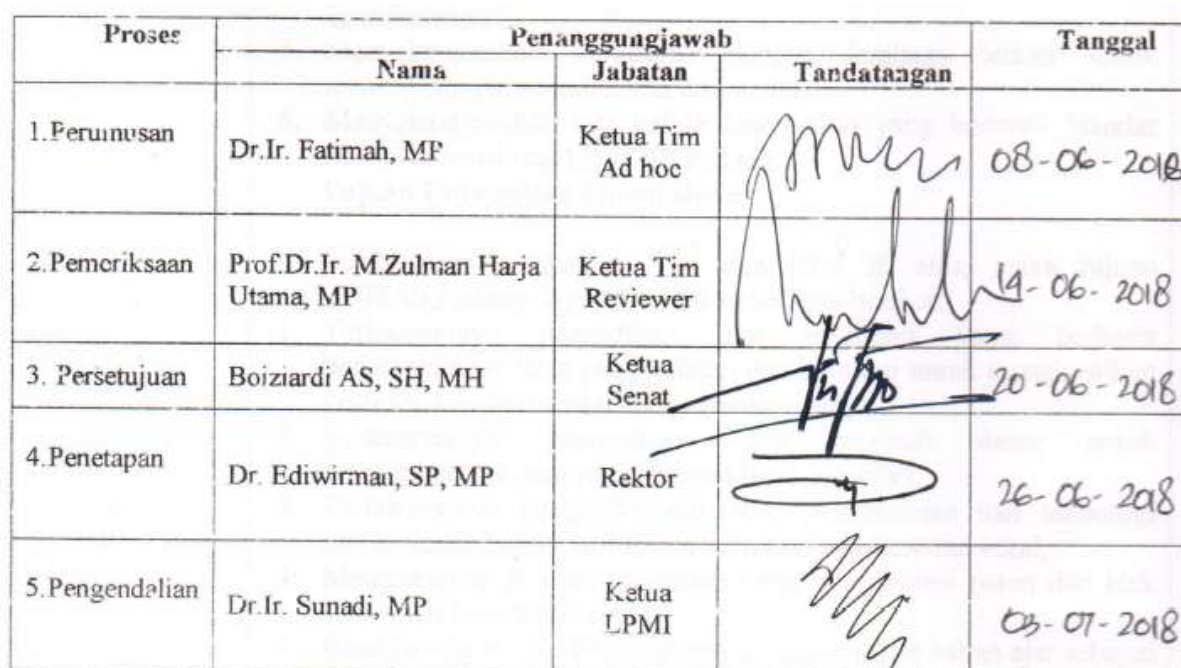 Proses Penanggungjawab Tanggal
Nama Jabatan Tandatangan
1.Perumusan Dr.Ir. Fatimah, MP Ketua Tim
Ad hoc 08-06-2018
2.Pemeriksaan Prof.Dr.Ir. M.Zulman Harja
Utama, MP Ketua Tim
Reviewer 14-06-2018
3. Persetujuan Boiziardi AS, SH, MH Ketua
Senat 20-06-2018
4.Penetapan Dr. Ediwirman, SP, MP Rektor 26-06-2018
5.Pengendalian Dr.Ir. Sunadi, MP Ketua
LPMI 03-07-2018